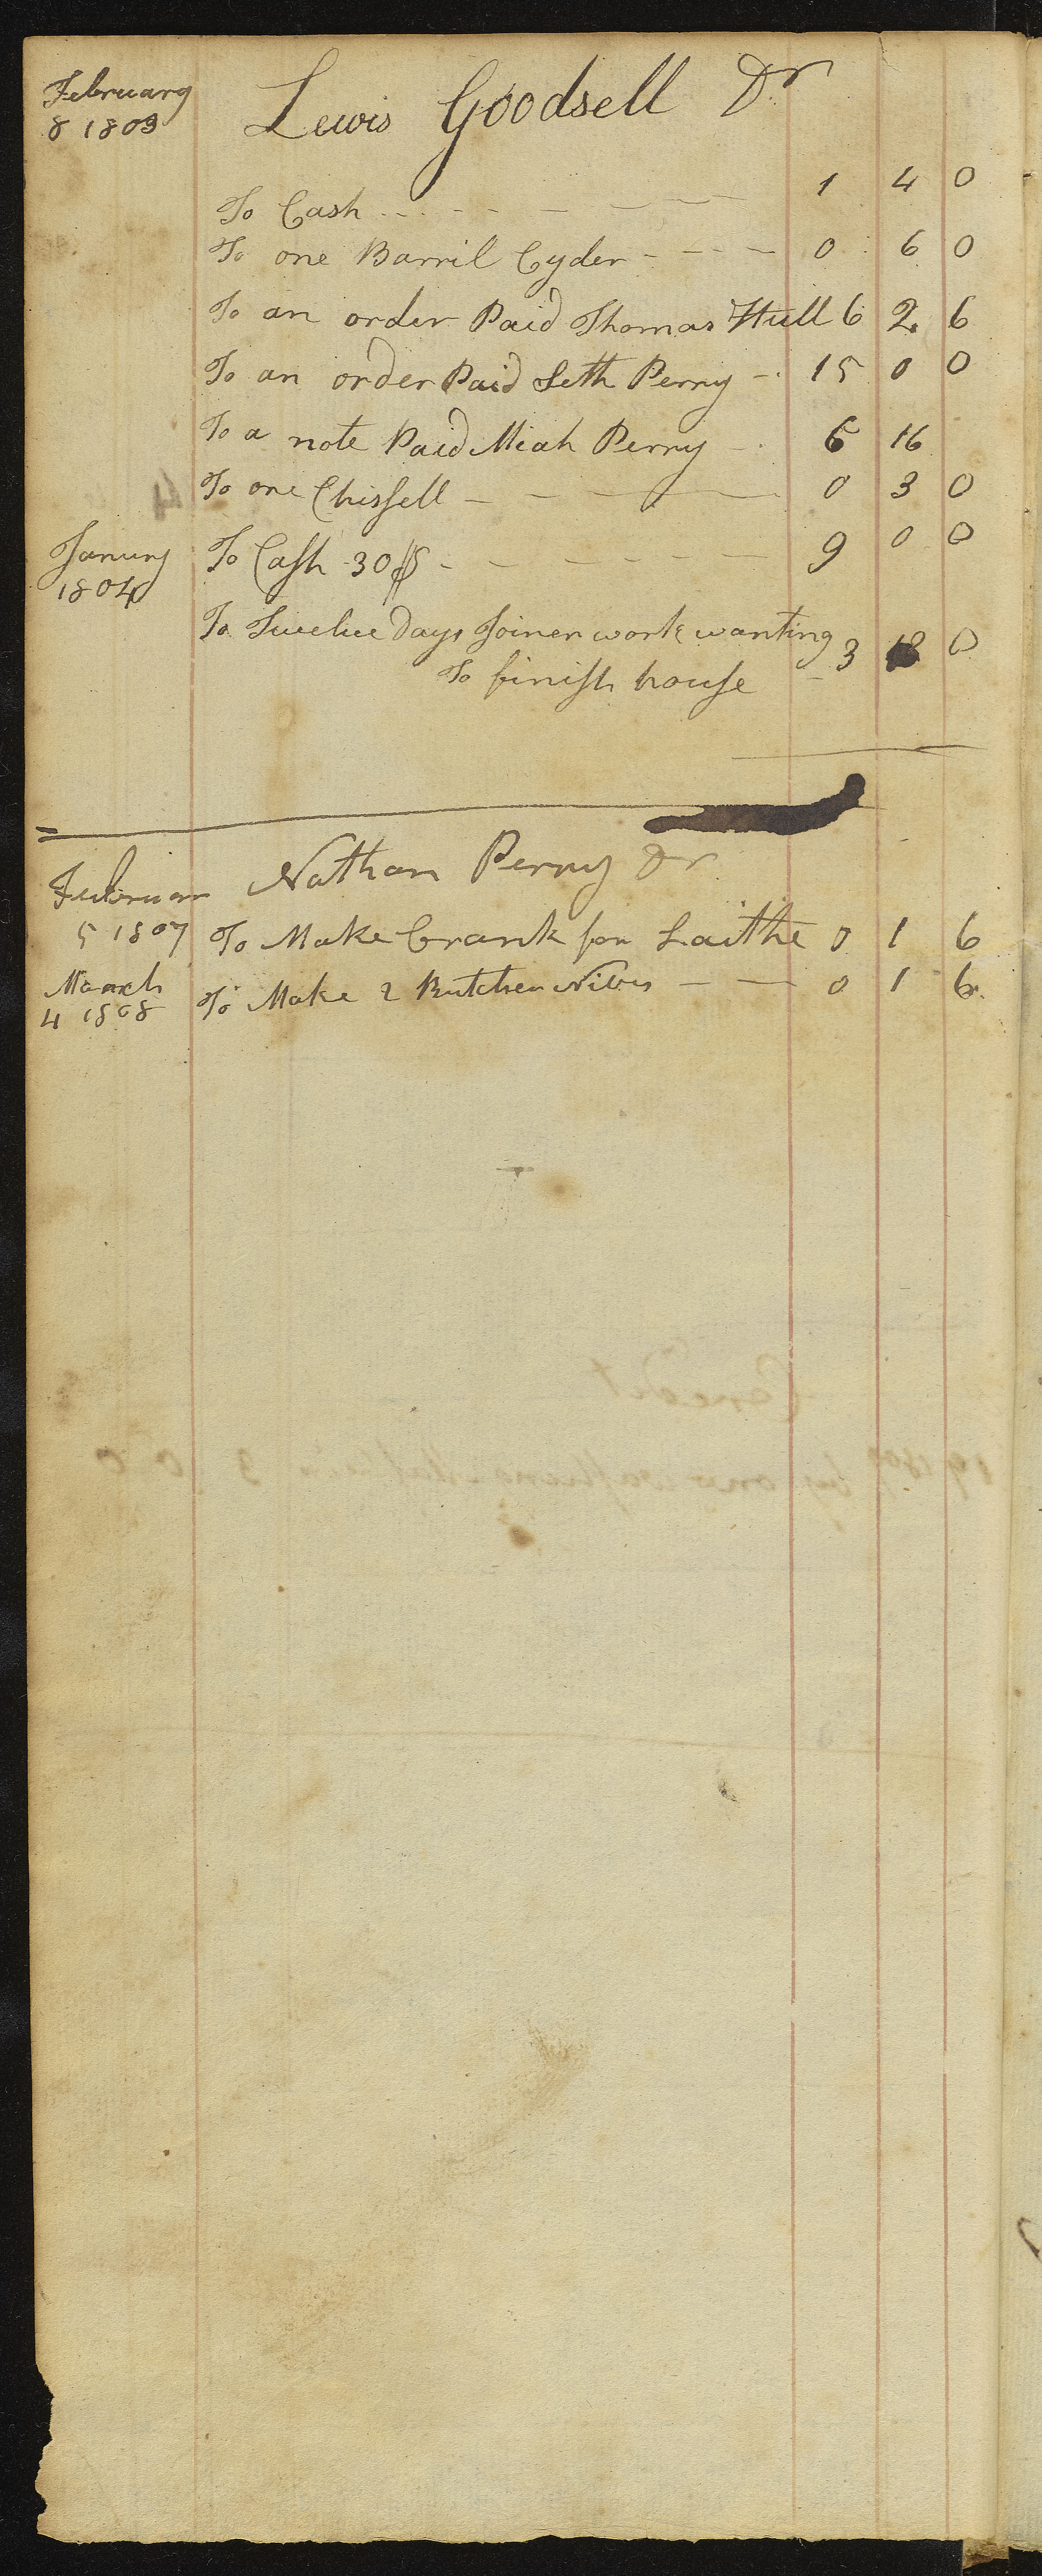 February
8 1803
Lewis Goodsell Dr
To Cash 1 4 0
To one Barril Cyder 0 6 0
To an order Paid Thomas Hull 6 2 6
To an order Paid Seth Perry 15 0 0
To a note Paid Miah Perry 6 16
To one Chissell 0 3 0
Janury
1804
To Cash 30$ 9 0 0
To Twelve Days Joiner work wanting
To finish house 3 18 0
Nathan Perry Dr
Februar
5 1807 To Make Crank for Laithe 0 1 6
March
4 1808 To Make 2 Butcher Nives 0 1 6